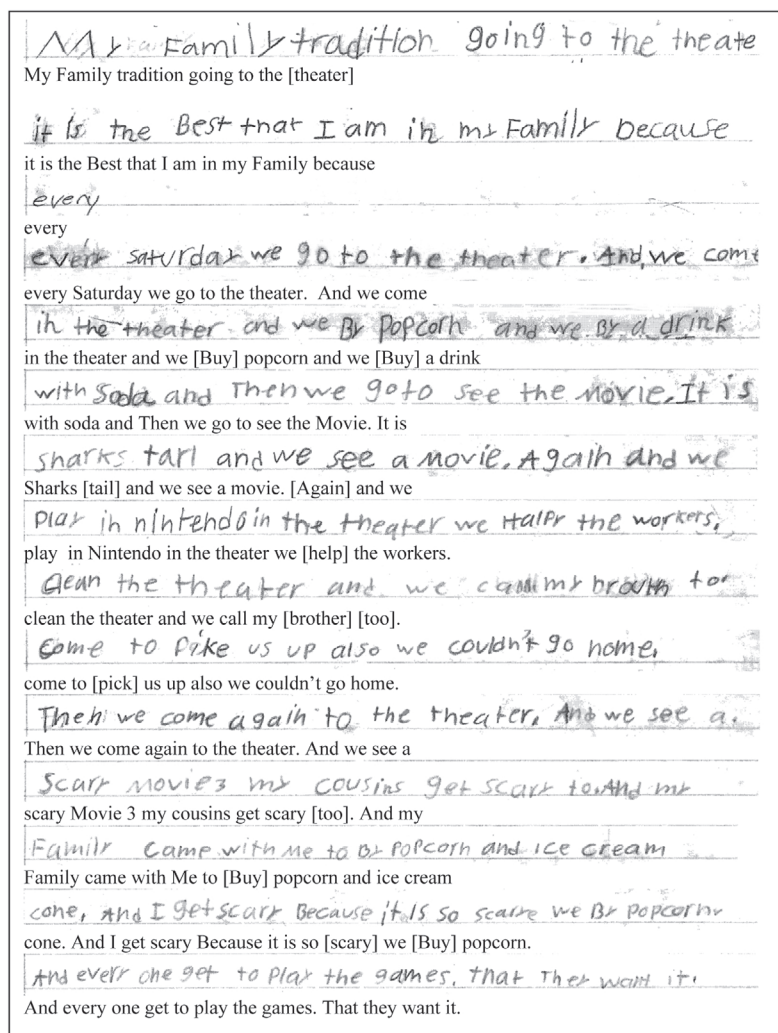 My Family tradition going to the theate
My Family tradition going to the [theater]
it is the Best that I am in my Family because
it is the Best that I am in my Family because
every
every
every saturday we go to the theater. And we come
every Saturday we go to the theater. And we come
in the theater and we By popcorn and we By a drink
in the theater and we [Buy] popcorn and we [Buy] a drink
with Soda and Then we go to see the Movie. It is
with soda and Then we go to see the Movie. It is
sharks tarl and we see a movie. Again and we
Sharks [tail] and we see a movie. [Again] and we
play in nintendo in the theater we Halpy the workers.
play in Nintendo in the theater we [help] the workers.
clean the theater and we call my brouth to
clean the theater and we call my [brother] [too].
Come to pike us up also we couldn't go home.
come to [pick] us up also we couldn't go home.
Then we come again to the theater. And we see a.
Then we come again to the theater. And we see a
Scary Movie 3 my cousins get scary to. And my
scary Movie 3 my cousins get scary [too]. And my
Family came with Me to By popcorn and ice cream
Family came with Me to [Buy] popcorn and ice cream
cone. And I get scary Because it is so scarre we By popcorn.
cone. And I get scary Because it is so [scary] we [Buy] popcorn.
And every one get to play the games. that They want it.
And every one get to play the games. That they want it.